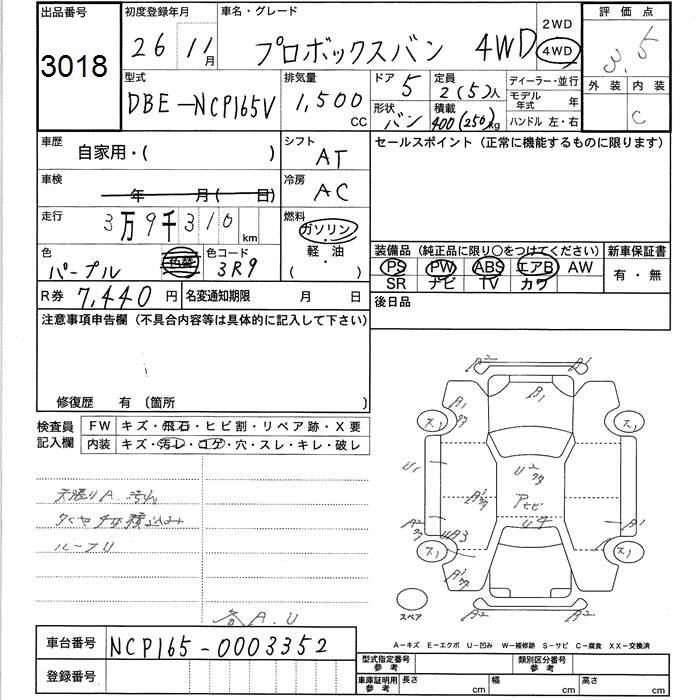 出品番号
3018
初度登録年月
26 11月
車名・グレード
プロボックスバン 4WD
2WD
4WD
評価点
3.5
外装 内装
C
型式
DBE-NCP165V
排気量
1,500
CC
ドア 5
形状 バン
定員 2(5)人
積載 400(250)kg
ディーラー・並行
モデル年式 年
ハンドル 左・右
車歴
自家用・( )
シフト
AT
セールスポイント(正常に機能するものに限ります)
車検
年 月( 日)
冷房
AC
走行
3万9千310km
燃料
ガソリン
軽・油
( )
色
パープル
色替
色コード
3R9
装備品(純正品に限り○をつけてください)
新車保証書
PS PW ABS エアB AW
SR ナビ TV カワ
有・無
R券 7,440円
名変通知期限 月 日
後日品
注意事項申告欄(不具合内容等は具体的に記入して下さい)
修復歴 有 〔箇所 〕
検査員記入欄
FW キズ・飛石・ヒビ割・リペア跡・X要
内装 キズ・汚レ・コゲ・穴・スレ・キレ・破レ
天張りA.汚れ
タイヤ4本積込み
ルーフU
各A.U
A2
A1
A1
B1
ス1
ス1
U1
U2
A1
Aヒビ
U4
A2
UA3
A1
ス1
ス1
A1
A2
A2
スペア
A-キズ E-エクボ U-凹み W-補修跡 S-サビ C-腐食 XX-交換済
車台番号
NCP165-0003352
登録番号
型式指定番号参考
類別区分番号参考
車庫証明用参考
長さ cm
幅 cm
高さ cm